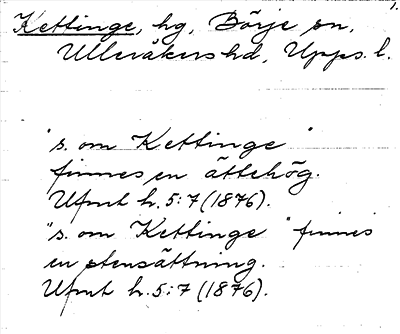 1.
Kettinge, hg, Börje sn,
Ulleråkers hd, Upps. l.
"s. om Kettinge"
finnes en ättehög.
Ufmt h. 5:7 (1876).
"s. om Kettinge" finnes
en stensättning.
Ufmt h. 5:7 (1876).